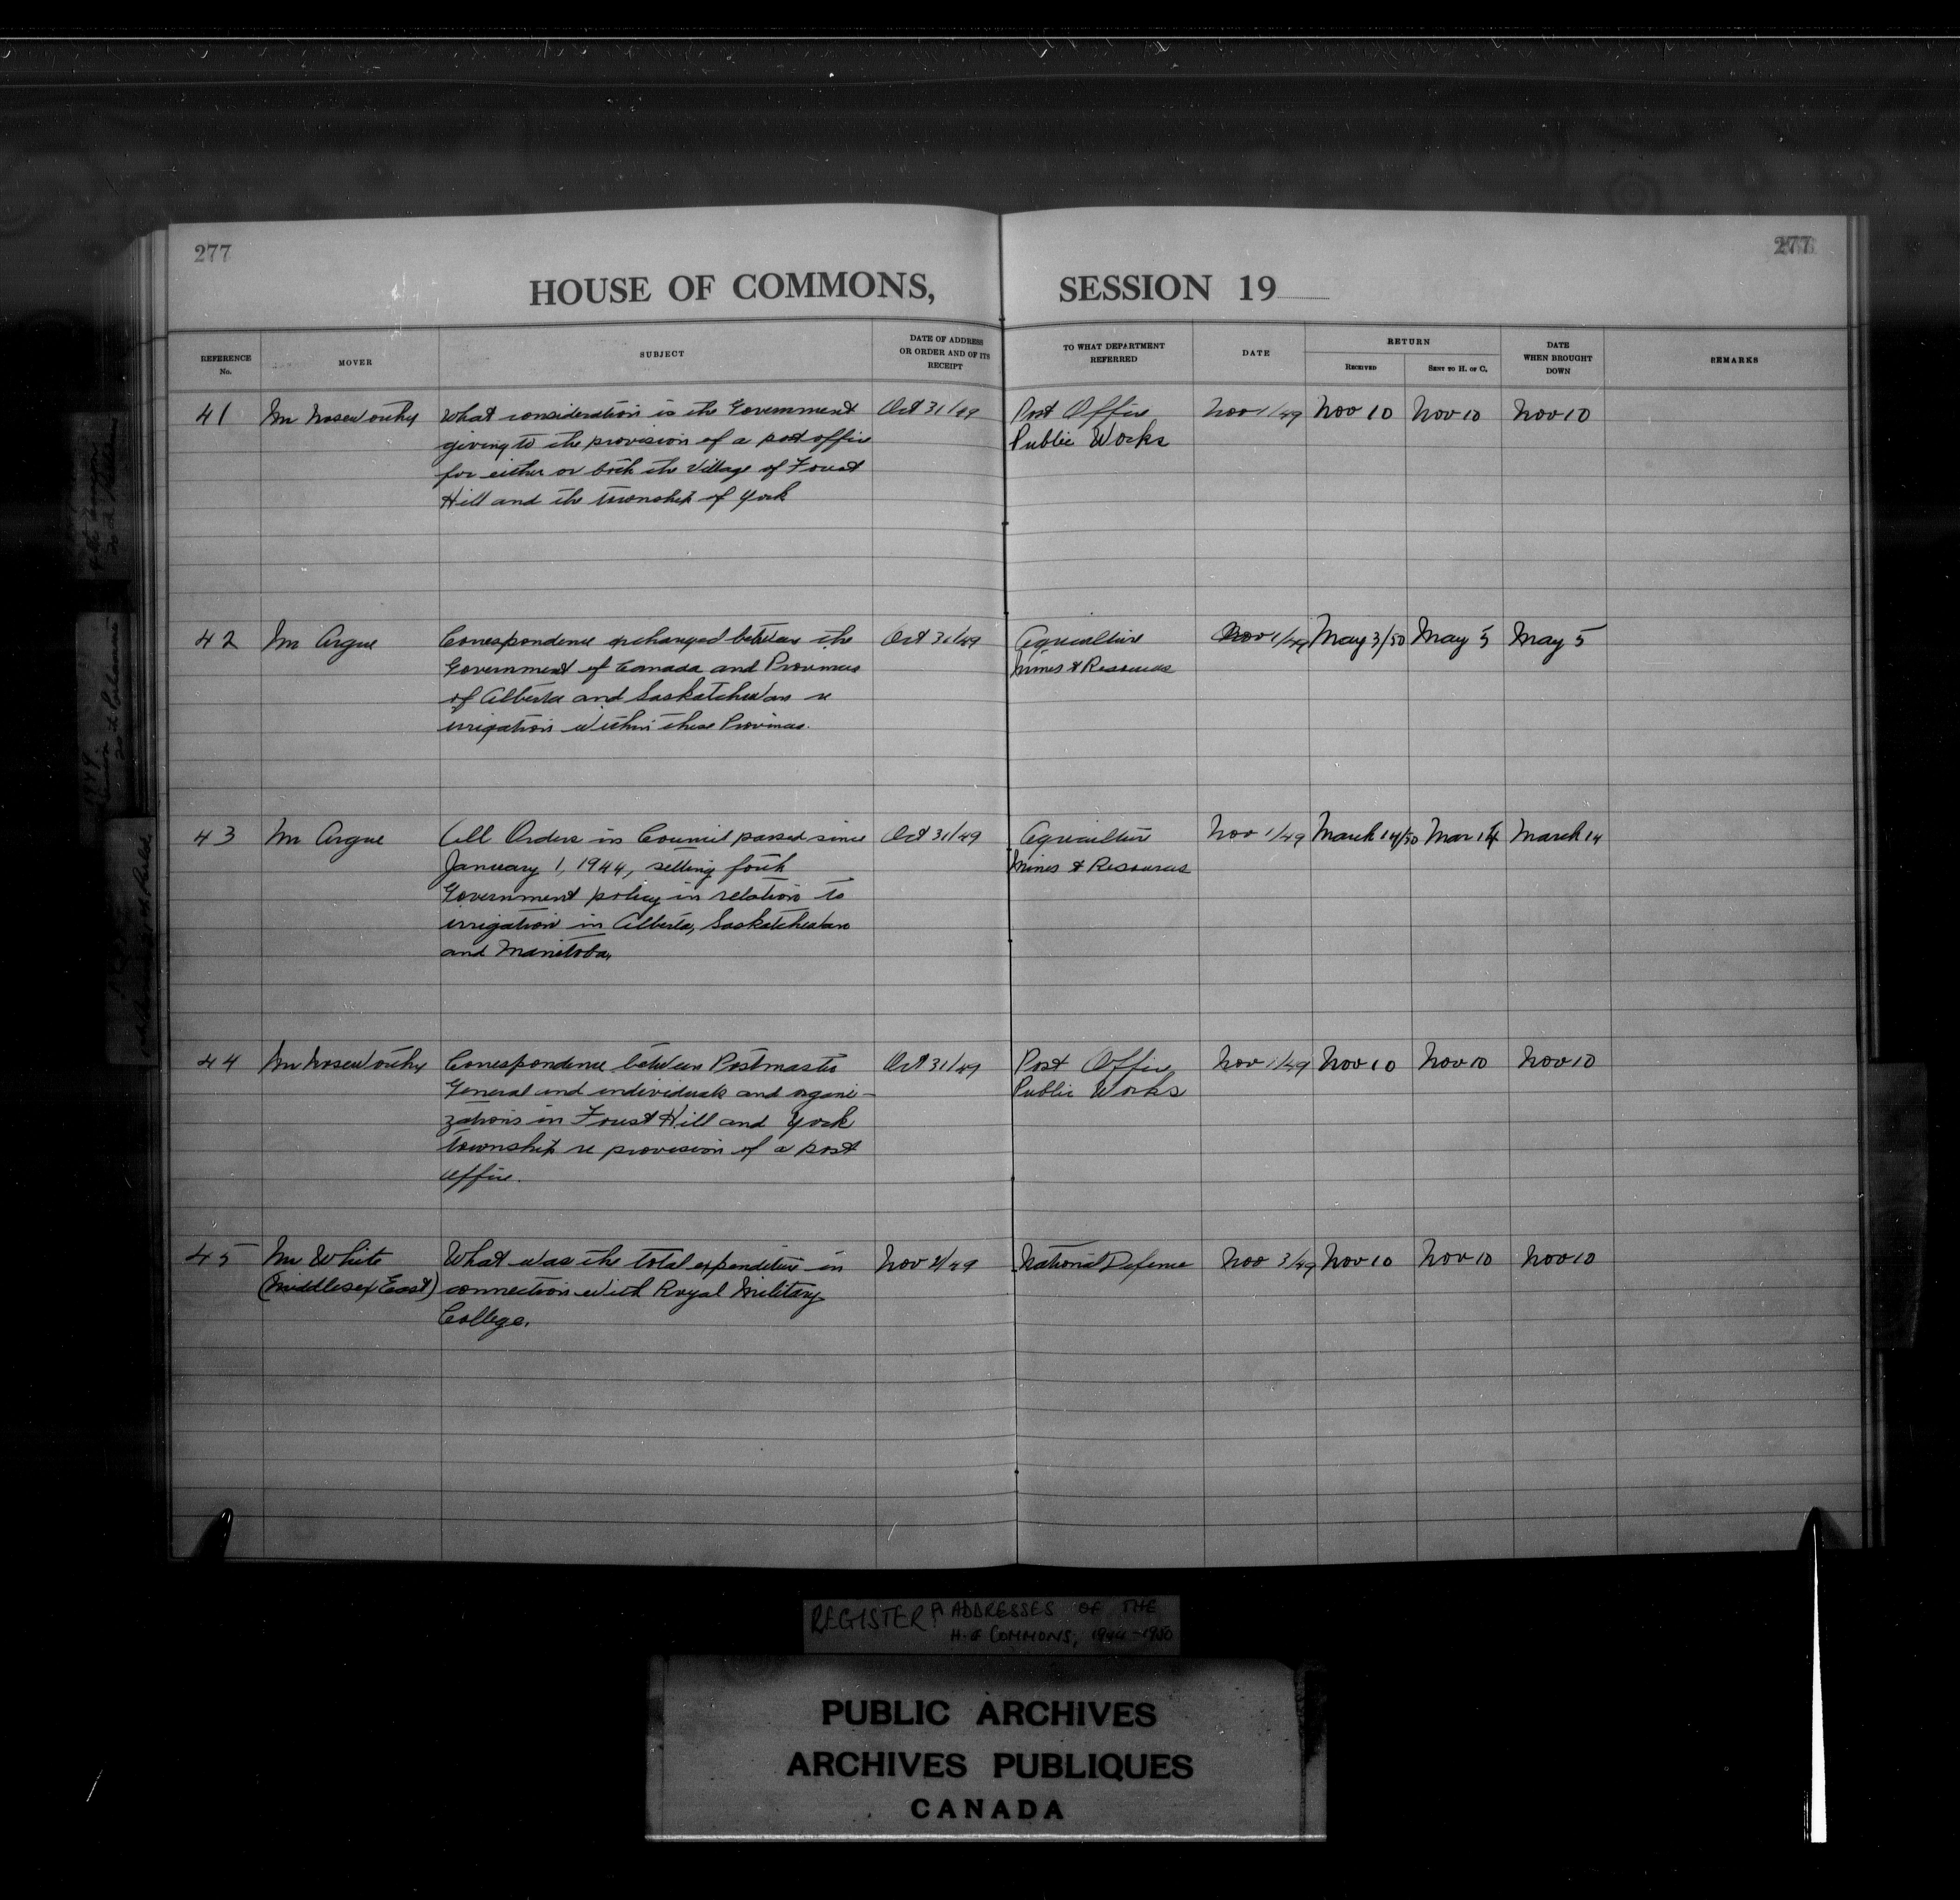 277
277
HOUSE OF COMMONS, SESSION 19
REFERENCE No.
MOVER
SUBJECT
DATE OF ADDRESS OR ORDER AND OF ITS RECEIPT
TO WHAT DEPARTMENT REFERRED
DATE
RETURN
RECEIVED
SENT TO H. OF C.
DATE WHEN BROUGHT DOWN
REMARKS
41 Mr Noseworthy What consideration is the Government Oct 31/49 Post Office Nov 1/49 Nov 10 Nov 10 Nov 10
giving to the provision of a post office Public Works
for either or both the Village of Forest
Hill and the township of York
42 Mr Argue Correspondence exchanged between the Oct 31/49 Agriculture Nov 1/49 May 3/50 May 5 May 5
Government of Canada and Provinces Mines & Resources
of Alberta and Saskatchewan re
irrigation within these Provinces.
43 Mr Argue All Orders in Council passed since Oct 31/49 Agriculture Nov 1/49 March 14/50 Mar 14 March 14
January 1, 1944, setting forth Mines & Resources
Government policy in relation to
irrigation in Alberta, Saskatchewan
and Manitoba.
44 Mr Noseworthy Correspondence between Postmaster Oct 31/49 Post Office Nov 1/49 Nov 10 Nov 10 Nov 10
General and individuals and organi- Public Works
zations in Forest Hill and York
township re provision of a post
office.
45 Mr White What was the total expenditure in Nov 2/49 National Defence Nov 3/49 Nov 10 Nov 10 Nov 10
(Middlesex East) connection with Royal Military
College.
REGISTER ADDRESSES OF THE
H. of COMMONS, 1944-1950
PUBLIC ARCHIVES
ARCHIVES PUBLIQUES
CANADA